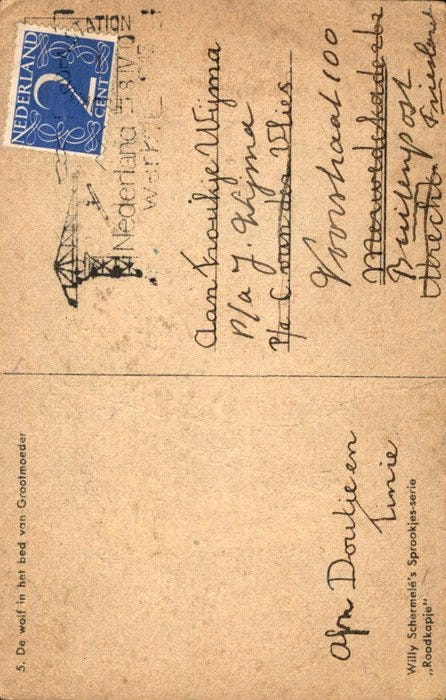 5. De wolf in het bed van Grootmoeder
Afn Doutje en
Tinie
Willy Schermelé's Sprookjes-serie
„Roodkapje"
NEDERLAND
2
CENT
Nederland
Aan Froukje Wijma
P/a J. Wijma
P/a C van der Vlies
Voorstraat 100
Merwedekade
Buitenpost
Utrecht Friesland